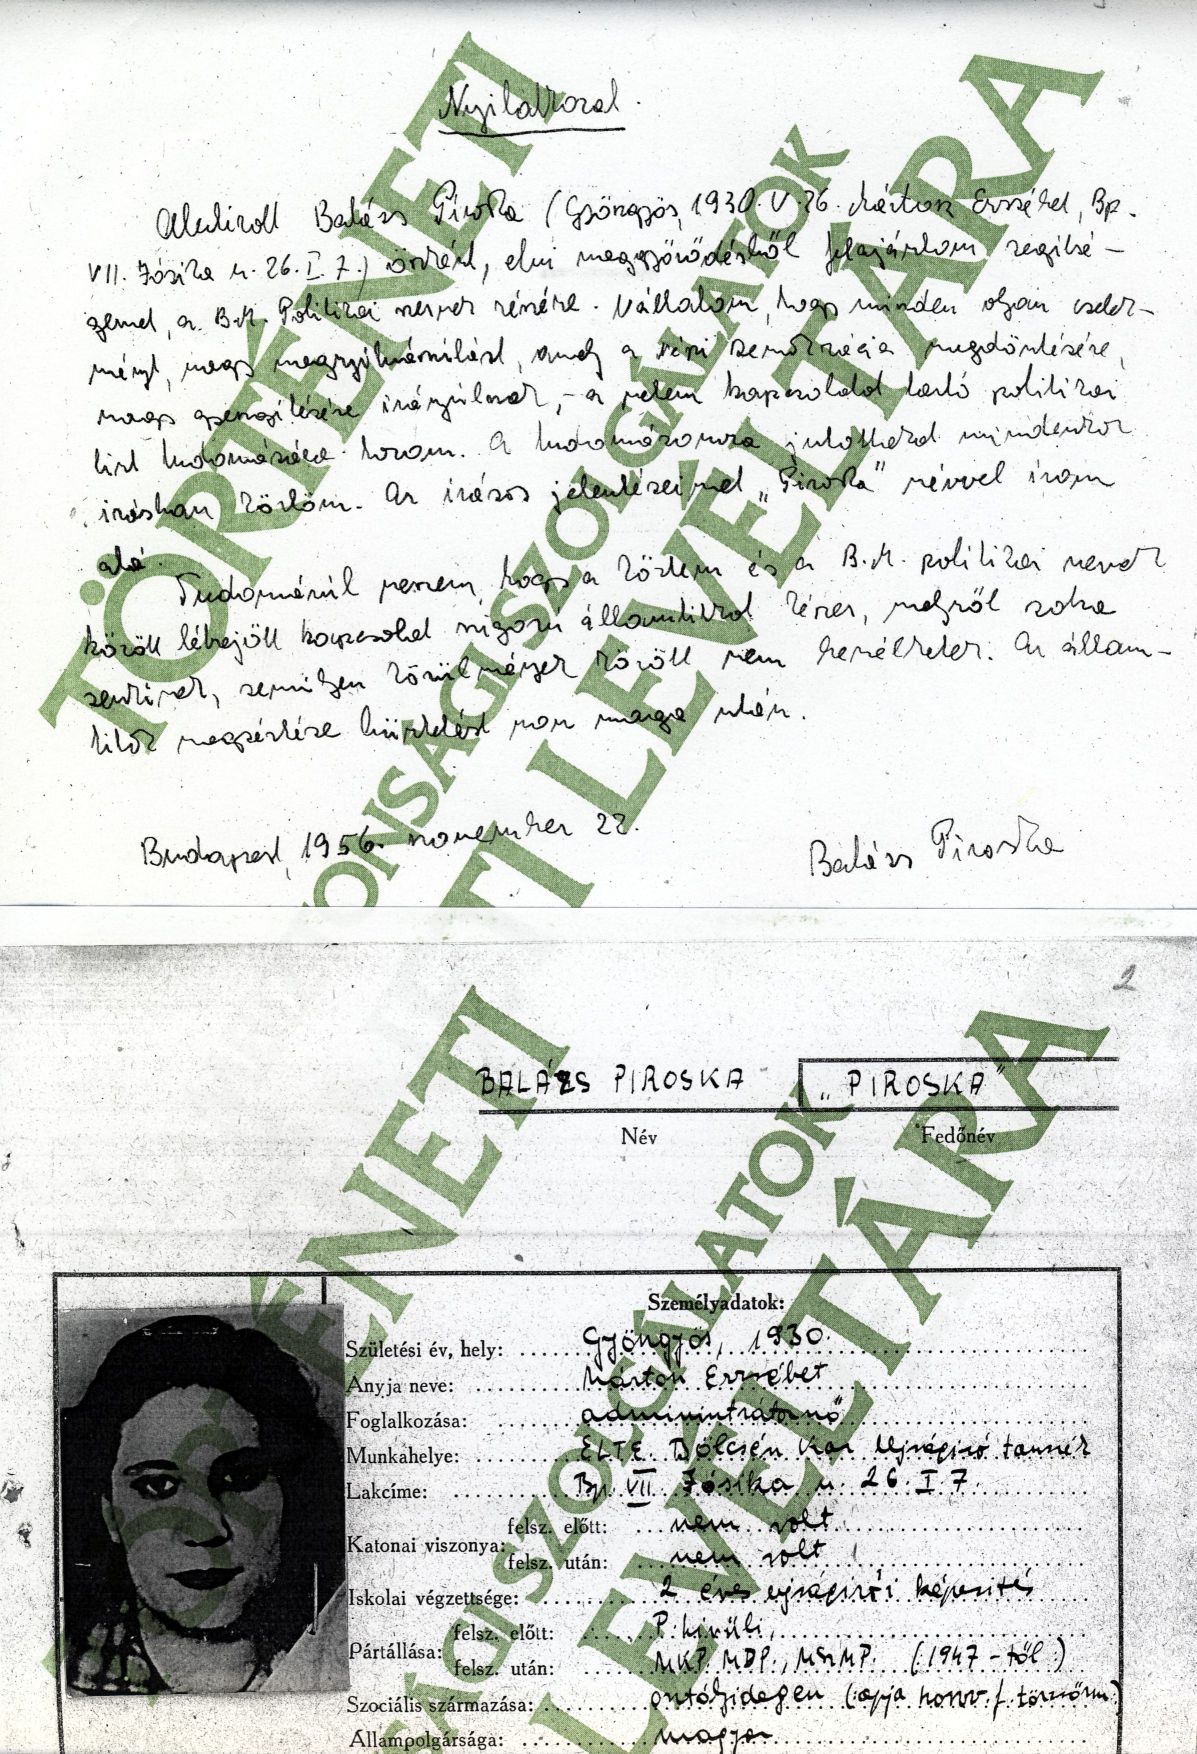 Nyilatkozat.
Alulírott Balázs Piroska (Gyöngyös, 1930. V. 26. Márton Erzsébet, Bp.
VII. Jósika u. 26. I. 7.) önként, elvi meggyőződésből felajánlom segítsé-
gemet, a B.M. Politikai szervei részére. Vállalom, hogy minden olyan cselek-
ményt, vagy megnyilvánulást, amely a népi demokrácia megdöntésére,
vagy gyengítésére irányulnak, - a velem kapcsolatot tartó politikai
tiszt tudomására hozom. A tudomásomra jutottakat mindenkor
írásban közlöm. Az írásos jelentéseimet „Piroska" névvel írom
alá.
Tudomásul veszem, hogy a köztem és a B.M. politikai szervek
között létrejött kapcsolat szigorú államtitkot képez, melyről soha
senkinek, semilyen körülmények között nem beszélhetek. Az állam-
titok megsértése büntetést von maga után.
Budapest, 1956. november 22.
Balázs Piroska
TÖRTÉNETI
SZOLGÁLATOK
LEVÉLTÁRA
2
BALÁZS PIROSKA „PIROSKA"
Név Fedőnév
Személyadatok:
Születési év, hely: Gyöngyös, 1930.
Anyja neve: Márton Erzsébet
Foglalkozása: adminisztrátornő
Munkahelye: ELTE. Bölcsész Kar Ujságiró tanszék
Lakcíme: Bp. VII Jósika u. 26. I. 7.
felsz. előtt: nem volt
Katonai viszonya:
felsz. után: nem volt
Iskolai végzettsége: 2 éves ujságirói képesítés
felsz. előtt: P. kivüli,
Pártállása:
felsz. után: MKP. MDP., MSzMP. (1947-től)
Szociális származása: osztályidegen (apja honv. f. törzsőrm.)
Állampolgársága: magyar
TÖRTÉNETI
SZOLGÁLATOK
LEVÉLTÁRA